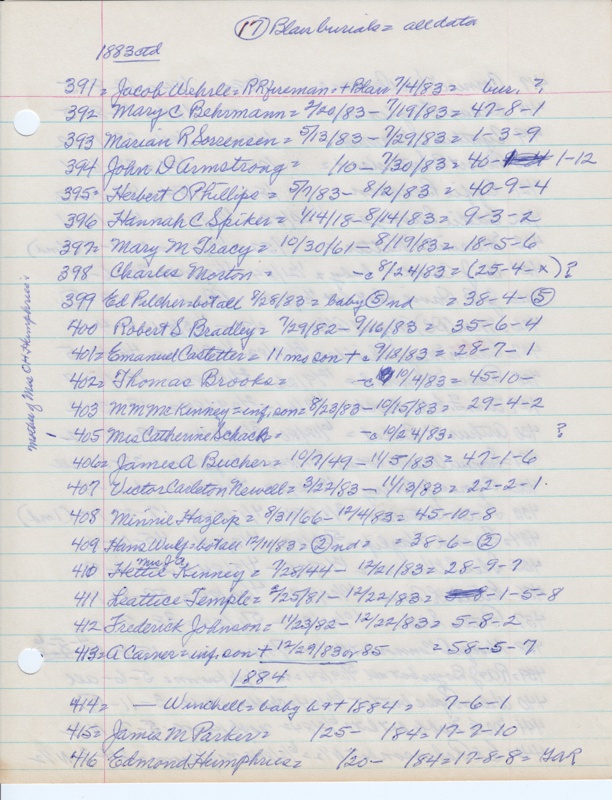 (17) Blair burials = all data
1883 ctd
391 = Jacob Wehrle = RR fireman = + Blair 7/4/83 = bur. ?
392 Mary C Behrmann = 2/20/83 - 7/19/83 = 47-8-1
393 Marian R Sorensen = 5/13/83 - 7/29/83 = 1-3-9
394 John D Armstrong = /10 - 7/30/83 = 40- 1-12
395 = Herbert O Phillips = 5/7/83 - 8/2/83 = 40-9-4
396 Hannah C Spiker = 1/14/18 - 8/14/83 = 9-3-2
397 = Mary M Tracy = 10/30/61 - 8/19/83 = 18-5-6
398 Charles Morton = - c 8/24/83 = (25-4-x) ?
399 Ed Pilcher = bot all 8/28/83 = baby (5) nd = 38-4-(5)
400 Robert S Bradley = 7/29/82 - 9/16/83 = 35-6-4
401 = Emanuel Castetter = 11 mo son + c 9/18/83 = 28-7-1
402 = Thomas Brooks = - c 10/4/83 = 45-10-
403 M M McKenney = inf. son = 8/23/83 - 10/15/83 = 29-4-2
405 Mrs Catherine Schack = - c 10/24/83 = ?
mother of Mrs O H Humphries
406 = James A Bucher = 10/7/49 - 11/5/83 = 47-1-6
407 Victor Carleton Newell = 3/22/83 - 11/13/83 = 22-2-1.
408 = Minnie Hazlip = 8/31/66 - 12/4/83 = 45-10-8
409 Hans Wulf = bot all 12/14/83 = (2) nd = = 38-6-(2)
410 Hettie Kinney = 7/28/44 - 12/21/83 = 28-9-7
411 Leattice Temple = 2/25/81 - 12/22/83 = 8-1-5-8
412 Frederick Johnson = 11/23/82 - 12/22/83 = 5-8-2
413 = A Carner = inf. son + 12/29/83 or 85 = 58-5-7
1884
414 = — Winchell = baby b & + 1884 = 7-6-1
415 = James M Parker = /25 - /84 = 17-7-10
416 Edmond Humphries = /20 - /84 = 17-8-8 = GAR